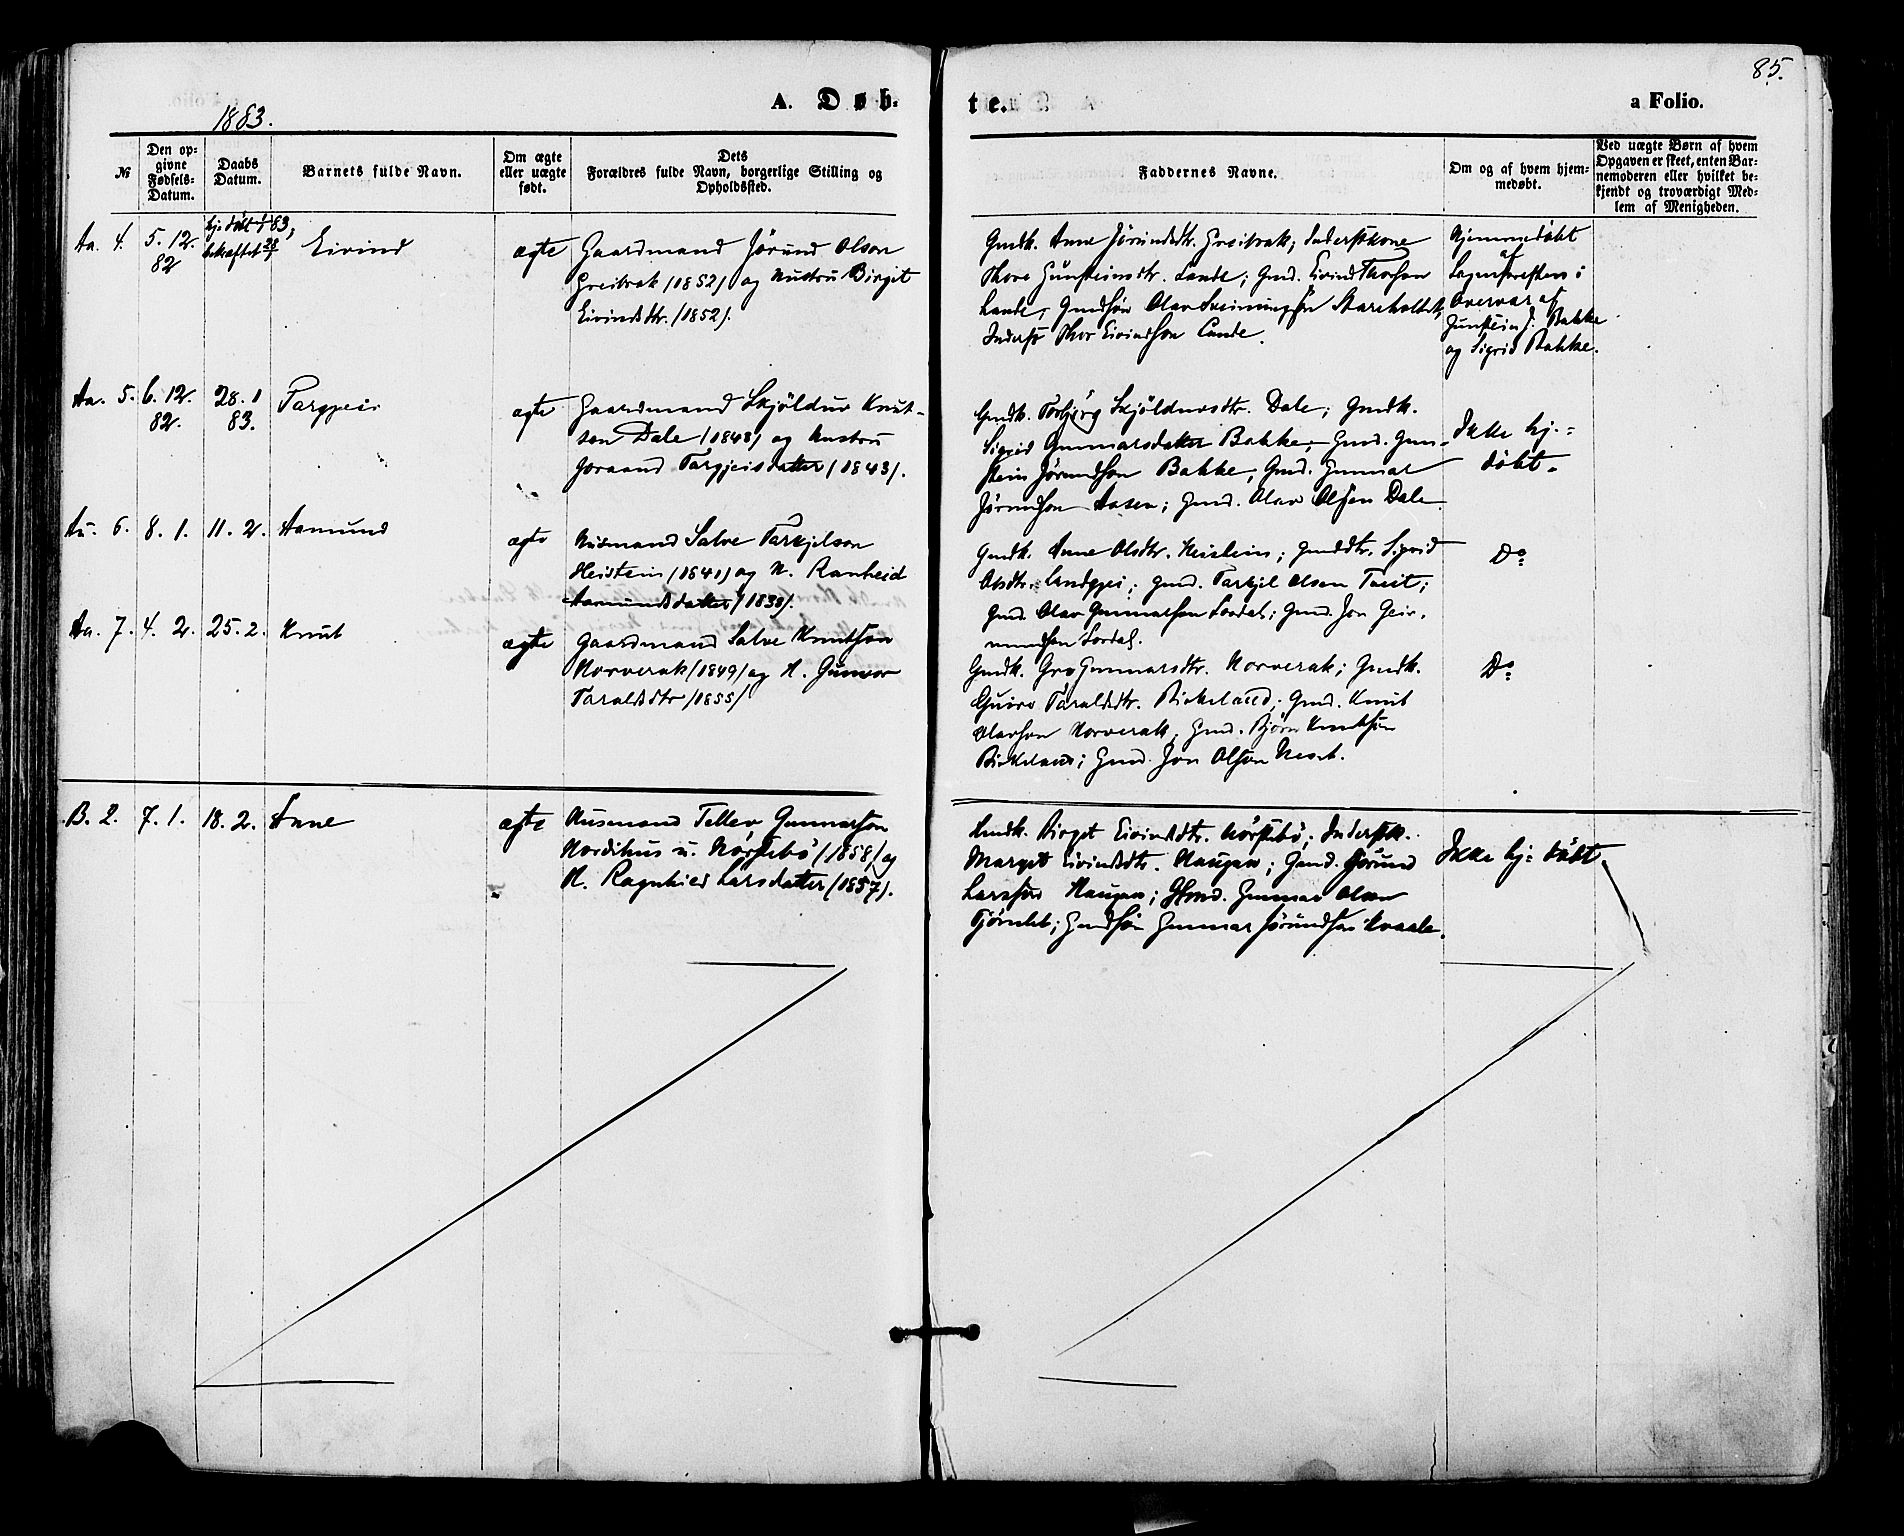 85.
1883.
A. Døb-
te.
a Folio.
№
Den op-
givne
Fødsels-
Datum.
Daabs
Datum.
Barnets fulde Navn.
Om ægte
eller uægte
født.
Dets
Forældres fulde Navn, borgerlige Stilling og
Opholdssted.
Faddernes Navne.
Om og af hvem hjem-
medøbt.
Ved uægte Børn af hvem
Opgaven er skeet, enten Bar-
nemoderen eller hvilket be-
kjendt og troværdigt Med-
lem af Menigheden.
Aa. 4.
5. 12.
82
hj. døbt 83,
bekræftet 28/1
Eivind
ægte
Gaardmand Jörund Olson
Greibrok (1852) og Hustru Birgit
Eivindsdtr. (1852).
Gmdk. Anne Jörundsdtr. Greibrok; Inderstkone
Thore Gunsteinsdtr. Lande; Gmd. Eivind Thorson
Lande; Gmdsön Olav Sveinungsön
Inderst Thor Eivindson Lande.
Hjemmedøbt
af
i
Overvær af
Gunstein J. Bakke
og Sigrid Bakke.
Aa. 5.
6. 12.
82.
28. 1
83.
Targjeir
ægte
Gaardmand Skjöldur Knut-
son Dale (1848) og Hustru
Joraand Targjeirsdatter (1843).
Gmdk. Torbjørg Skjöldursdtr. Dale; Gmdk.
Sigrid Gunnarsdatter Bakke; Gmd. Gun-
stein Jörundson Bakke; Gmd. Gunnar
Jörundson Aasen; Gmd. Olav Olsen Dale
Ikke hj.-
døbt.
Aa. 6.
8. 1.
11. 2.
Aamund
ægte
Husmand Salve Tarkjelson
Heistein (1840) og H. Ranheid
Aamundsdatter (1838).
Gmdk. Anne Olsdtr. Heistein; Gmddtr. Sigrid
Olsdtr. Landgjei; Gmd. Tarkjel Olson Tveit;
Gmd. Olav Gunnarson Lordal; Gmd. Jon Geir-
mundson Lordal.
Do
Aa. 7.
4. 2.
25. 2.
Knut
ægte
Gaardmand Salve Knutson
Horverak (1849) og H. Gunvor
Taraldsdtr (1855)
Gmdk. Gro Gunnarsdtr. Horverak; Gmdk.
Taraldsdtr. Birkeland; Gmd. Knut
Olavson Horverak; Gmd. Bjørn Knutson
Birkeland; Gmd. Jon Olson
Do
B. 2.
7. 1.
18. 2.
Anne
ægte
Husmand Tellev Gunnarson
Nordihus u. Nørstebö (1858) og
H. Ragnhild Larsdatter (1857).
Hmdk. Birget Eivindsdtr. Nörstebö; Inderstk.
Marget Eivindsdtr. Haugen; Gmd. Jörund
Larsson Haugen; Hmd. Gunnar Olson
Gmdsön Gunnar Jörundson Kvaale.
Ikke hj: døbt.